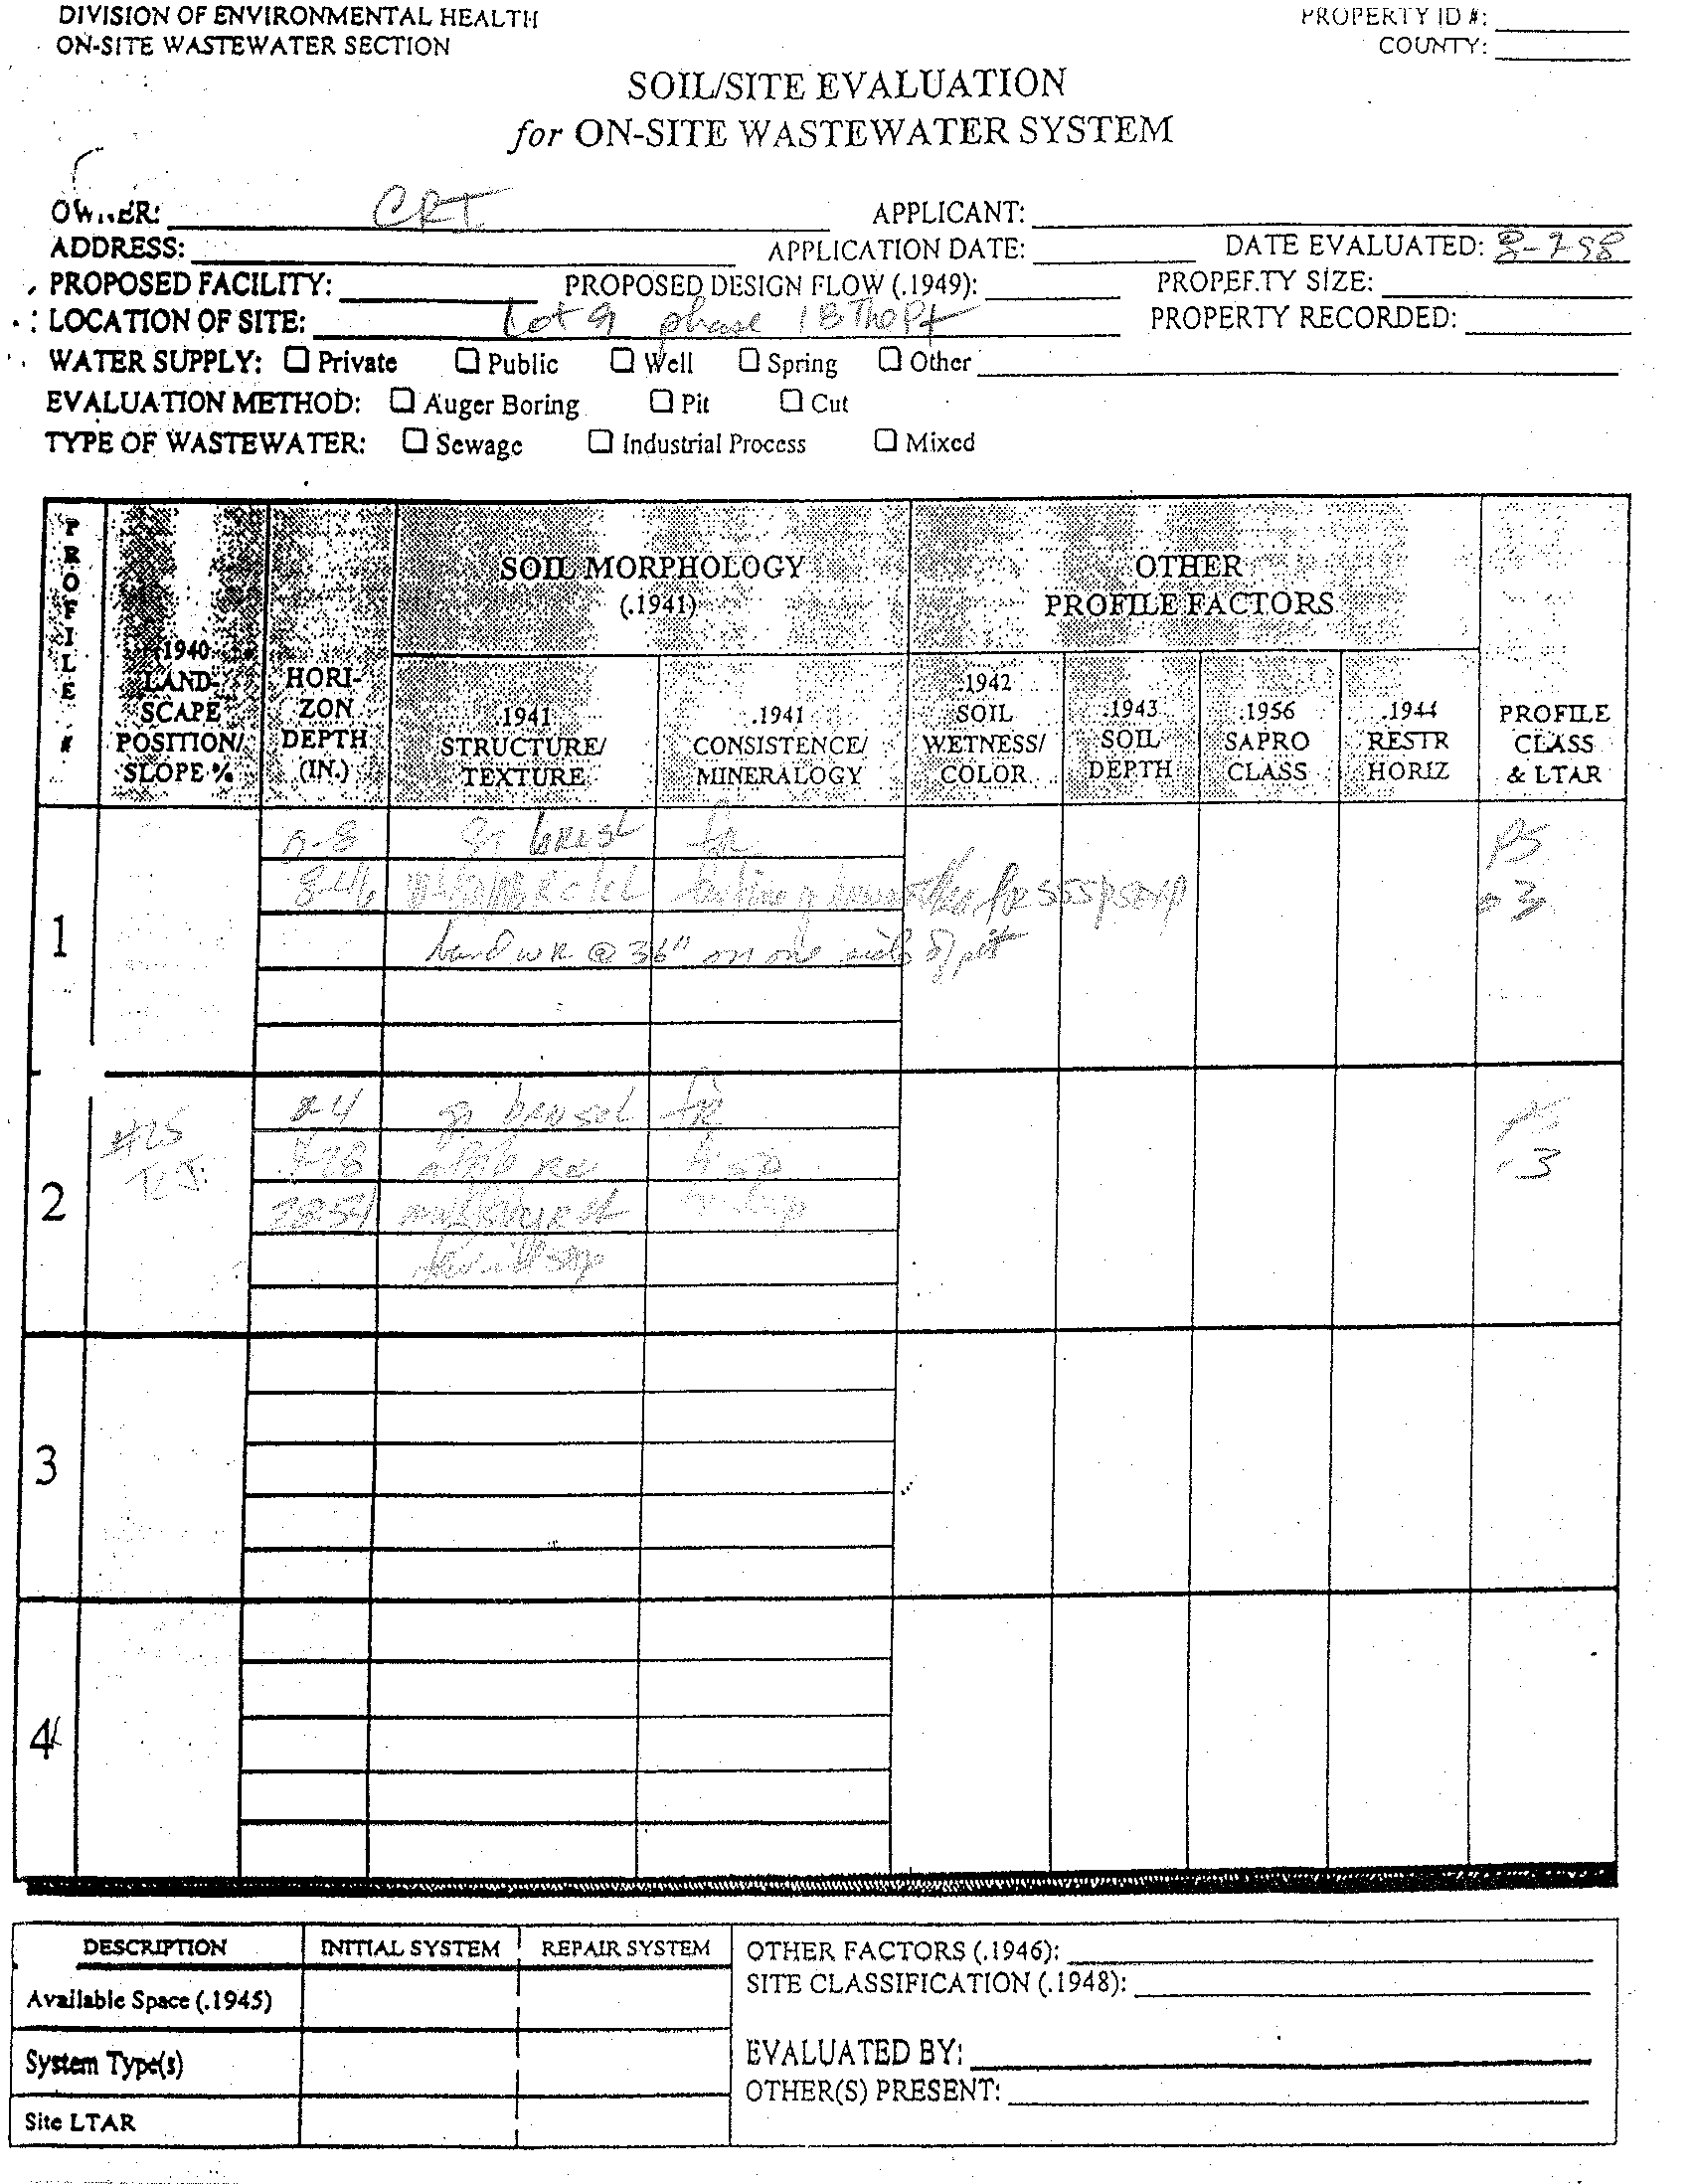 DIVISION OF ENVIRONMENTAL HEALTH
ON-SITE WASTEWATER SECTION
PROPERTY ID #:
COUNTY:
SOIL/SITE EVALUATION
for ON-SITE WASTEWATER SYSTEM
OWNER: CRT APPLICANT:
ADDRESS: APPLICATION DATE: DATE EVALUATED: 8-7-98
PROPOSED FACILITY: PROPOSED DESIGN FLOW (.1949): PROPERTY SIZE:
LOCATION OF SITE: Lot 9 phase 1B PROPERTY RECORDED:
WATER SUPPLY: ☐ Private ☐ Public ☐ Well ☐ Spring ☐ Other
EVALUATION METHOD: ☐ Auger Boring ☐ Pit ☐ Cut
TYPE OF WASTEWATER: ☐ Sewage ☐ Industrial Process ☐ Mixed
PROFILE #
.1940 LAND-SCAPE POSITION/ SLOPE %
HORI-ZON DEPTH (IN.)
SOIL MORPHOLOGY
(.1941)
.1941 STRUCTURE/ TEXTURE
.1941 CONSISTENCE/ MINERALOGY
OTHER
PROFILE FACTORS
.1942 SOIL WETNESS/ COLOR
.1943 SOIL DEPTH
.1956 SAPRO CLASS
.1944 RESTR HORIZ
PROFILE CLASS & LTAR
1
0-8 gr fr PS
8-46 .3
@ 36" on one side of pit
2
0-4 gr fr PS
4-28 .3
28-54
3
4
DESCRIPTION INITIAL SYSTEM REPAIR SYSTEM
Available Space (.1945)
System Type(s)
Site LTAR
OTHER FACTORS (.1946):
SITE CLASSIFICATION (.1948):
EVALUATED BY:
OTHER(S) PRESENT: